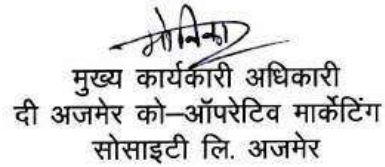 मोनिका
मुख्य कार्यकारी अधिकारी
दी अजमेर को–ऑपरेटिव मार्केटिंग
सोसाइटी लि. अजमेर